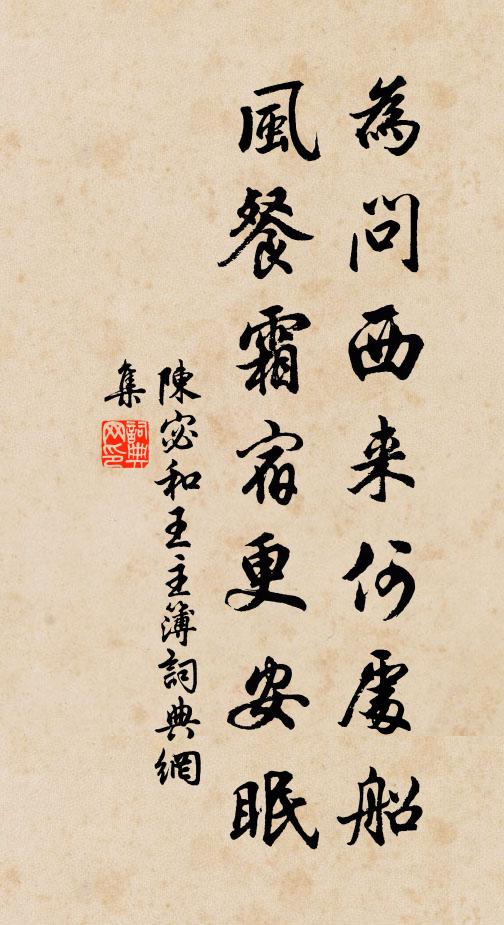 為問西来何處船
風餐霜宿更安眠
陳宓和王主簿詞典網
集
詞典
网印